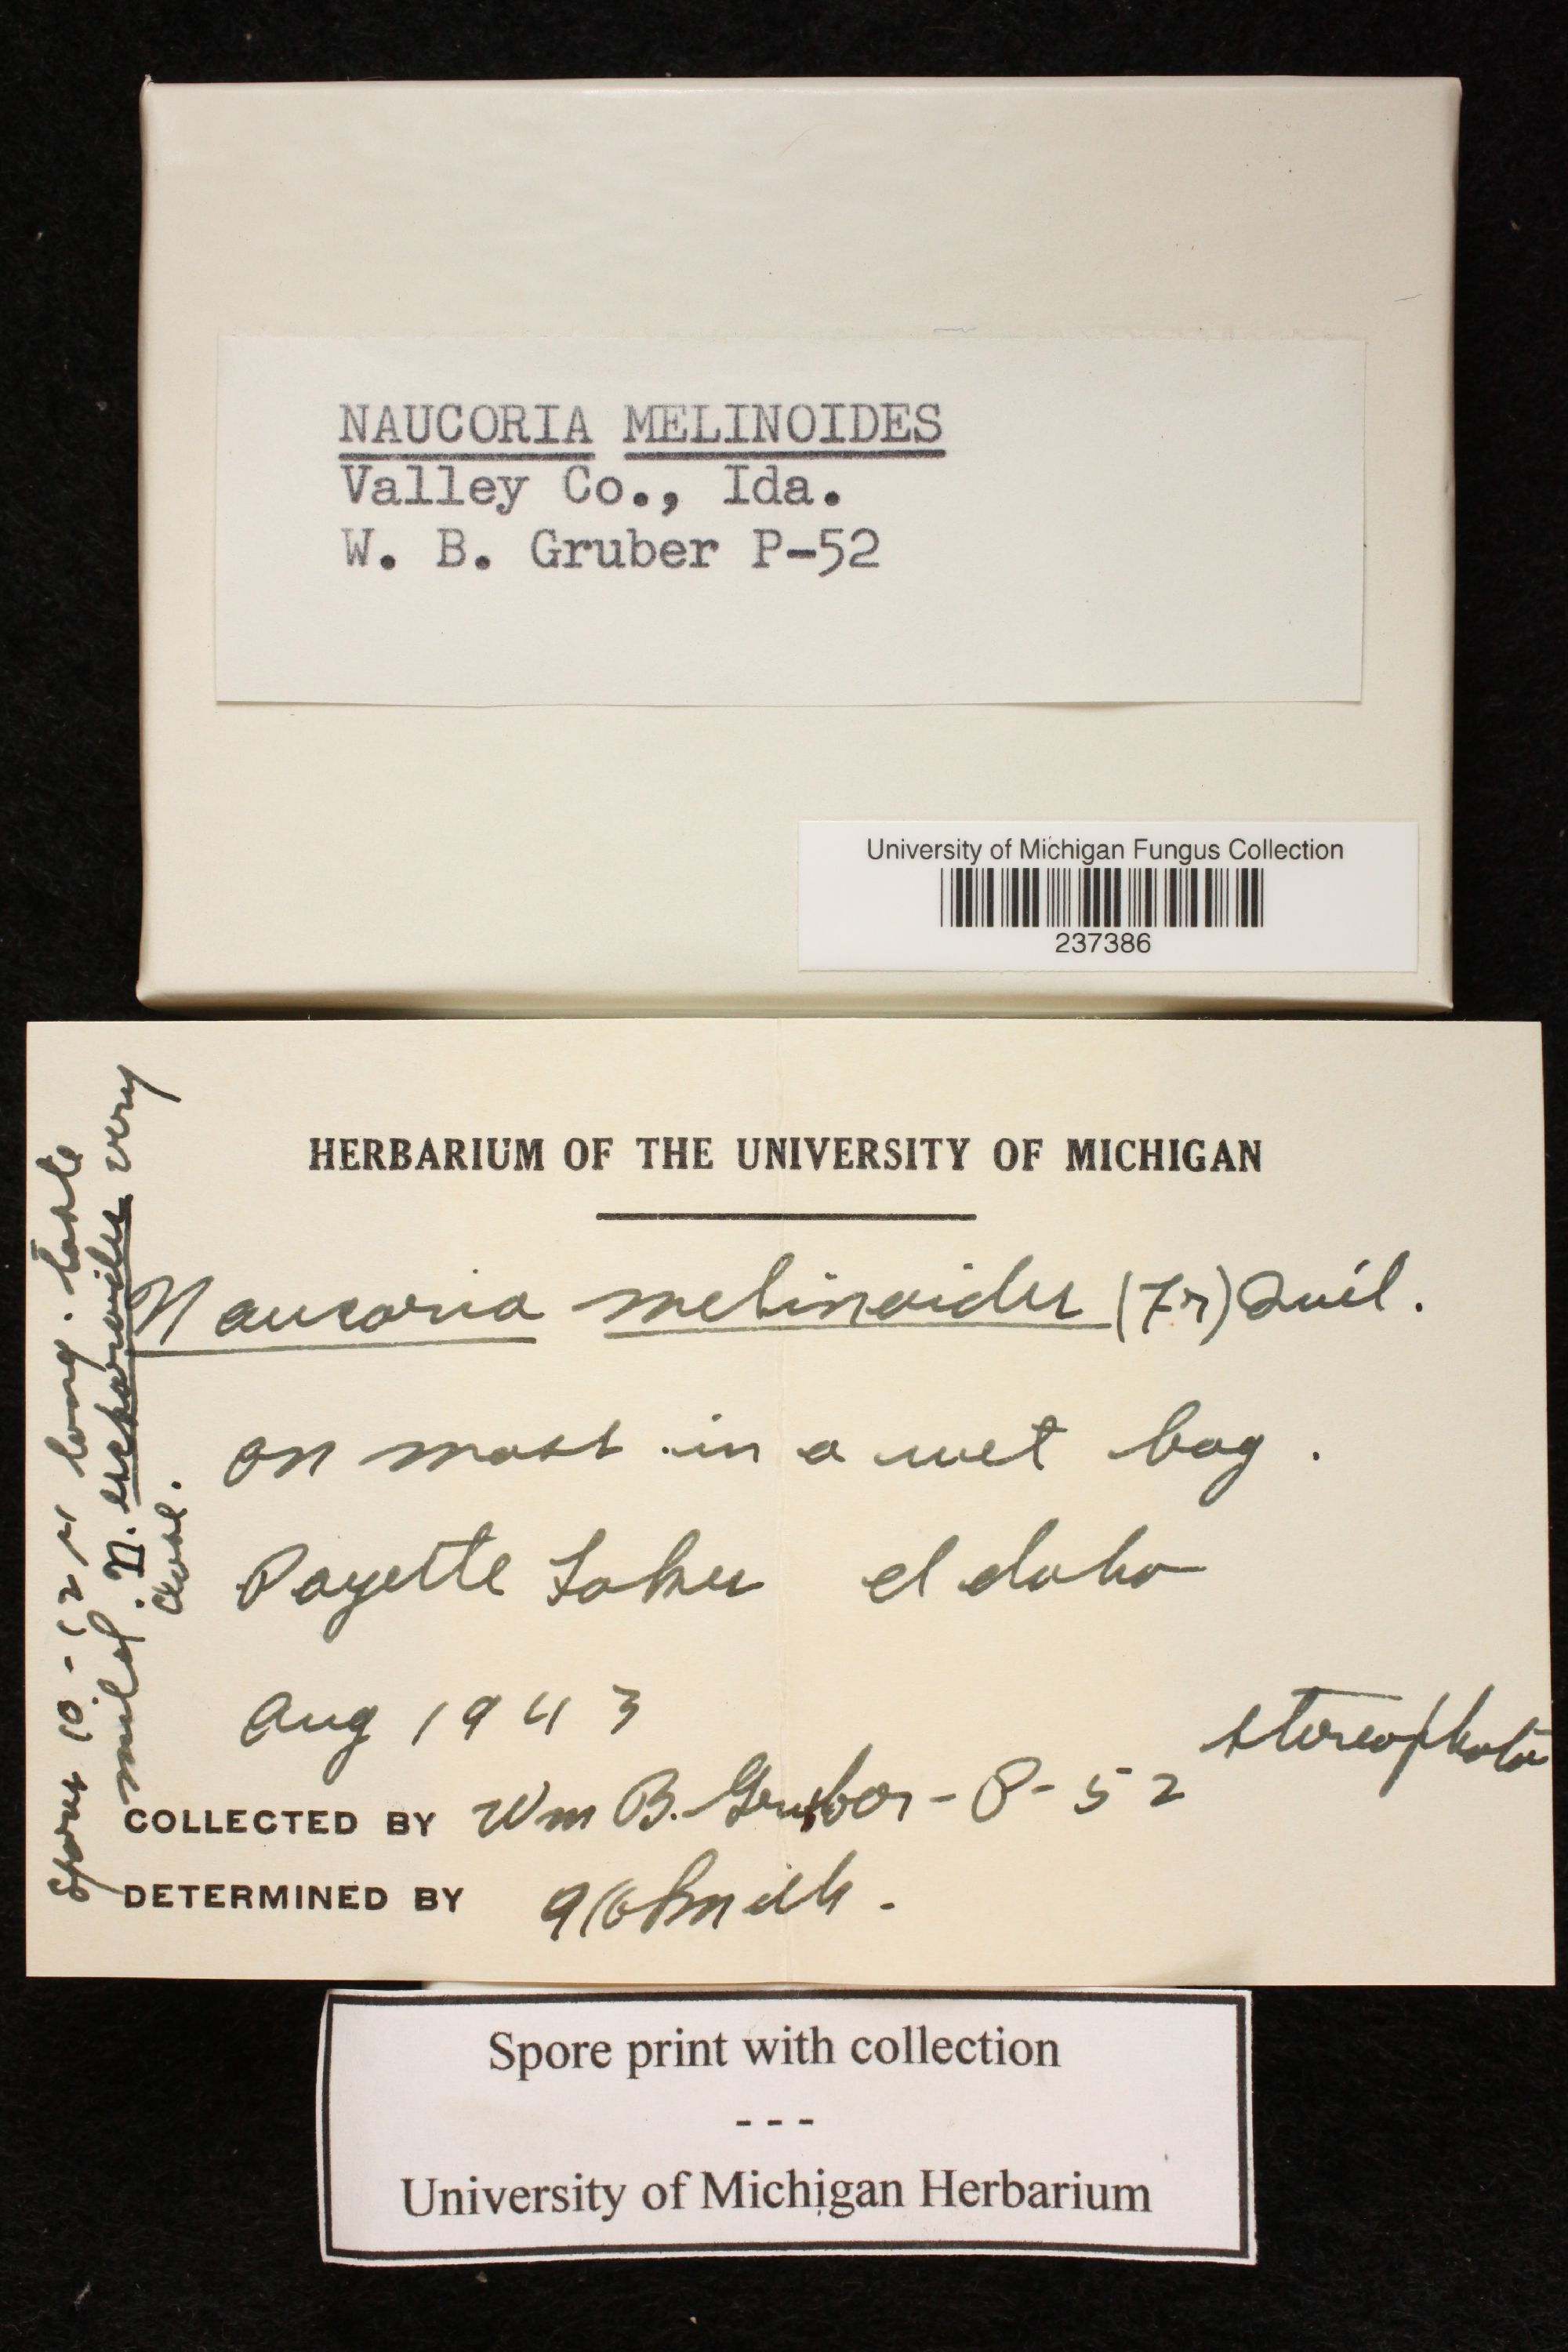 NAUCORIA MELINOIDES
Valley Co., Ida.
W. B. Gruber P-52
University of Michigan Fungus Collection
237386
HERBARIUM OF THE UNIVERSITY OF MICHIGAN
Naucoria melinoides (Fr) Quél.
on moss in a wet bog.
Payette Lakes Idaho
Aug 1943
stereophoto
COLLECTED BY Wm B. Gruber - P-52
DETERMINED BY AHSmith.
Spores 10-12 µ long. taste
mild. N. escharoides very
close.
Spore print with collection
---
University of Michigan Herbarium